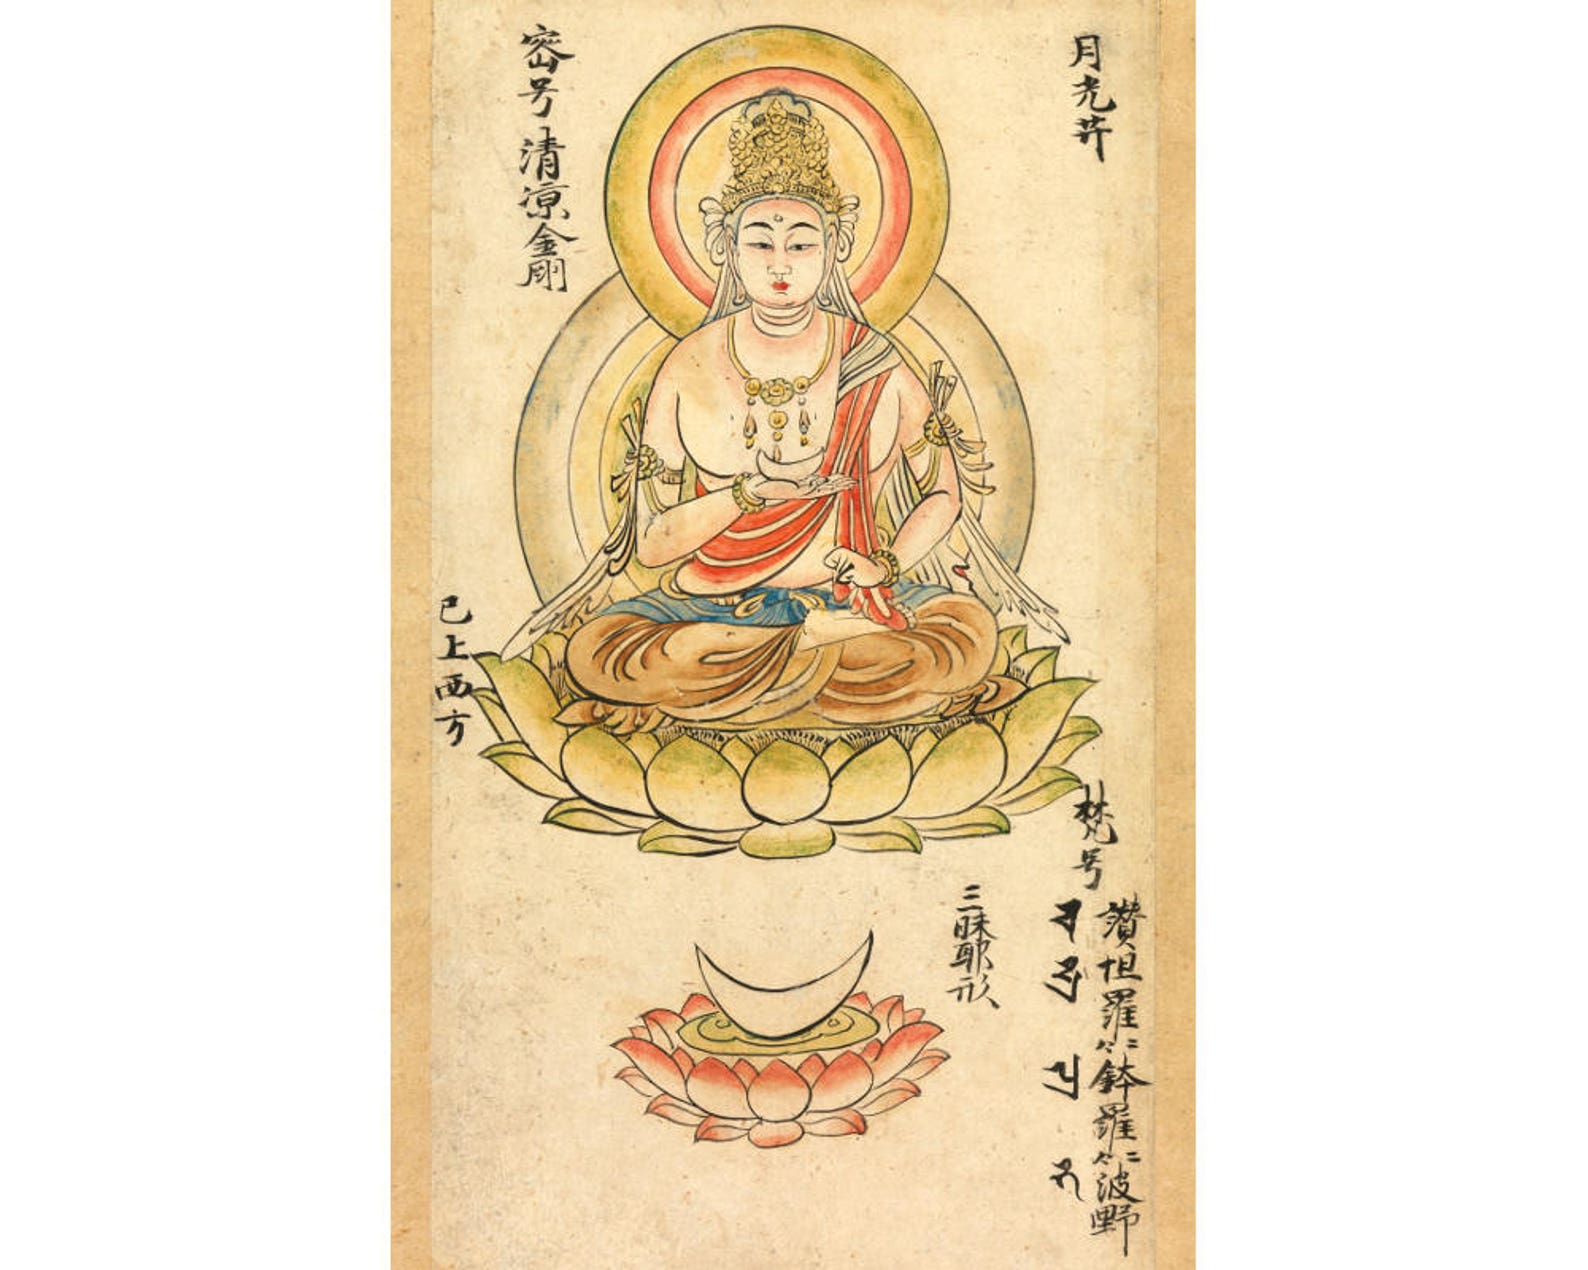 月光𦬇
密号 清凉金剛
梵号
讃怛羅二合鉢羅二合波野
三昧耶形
已上西方